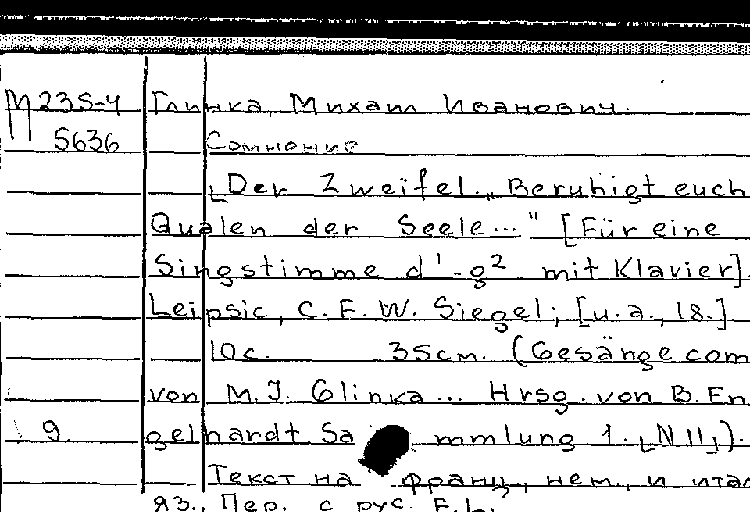 М 235-4 Глинка, Михаил Иванович.
5636 Сомнение
Der Zweifel. „Beruhigt euch
Qualen der Seele..." [Für eine
Singstimme d¹-g² mit Klavier].
Leipsic, C. F. W. Siegel; [u. a., 18.]
10c. 35cm. (Gesänge com
von M. I. Glinka... Hrsg. von B. En
9 gelhardt Sa mmlung 1. [N 11]).
Текст на франц., нем., и итал
яз., Пер. с рус. F. L.